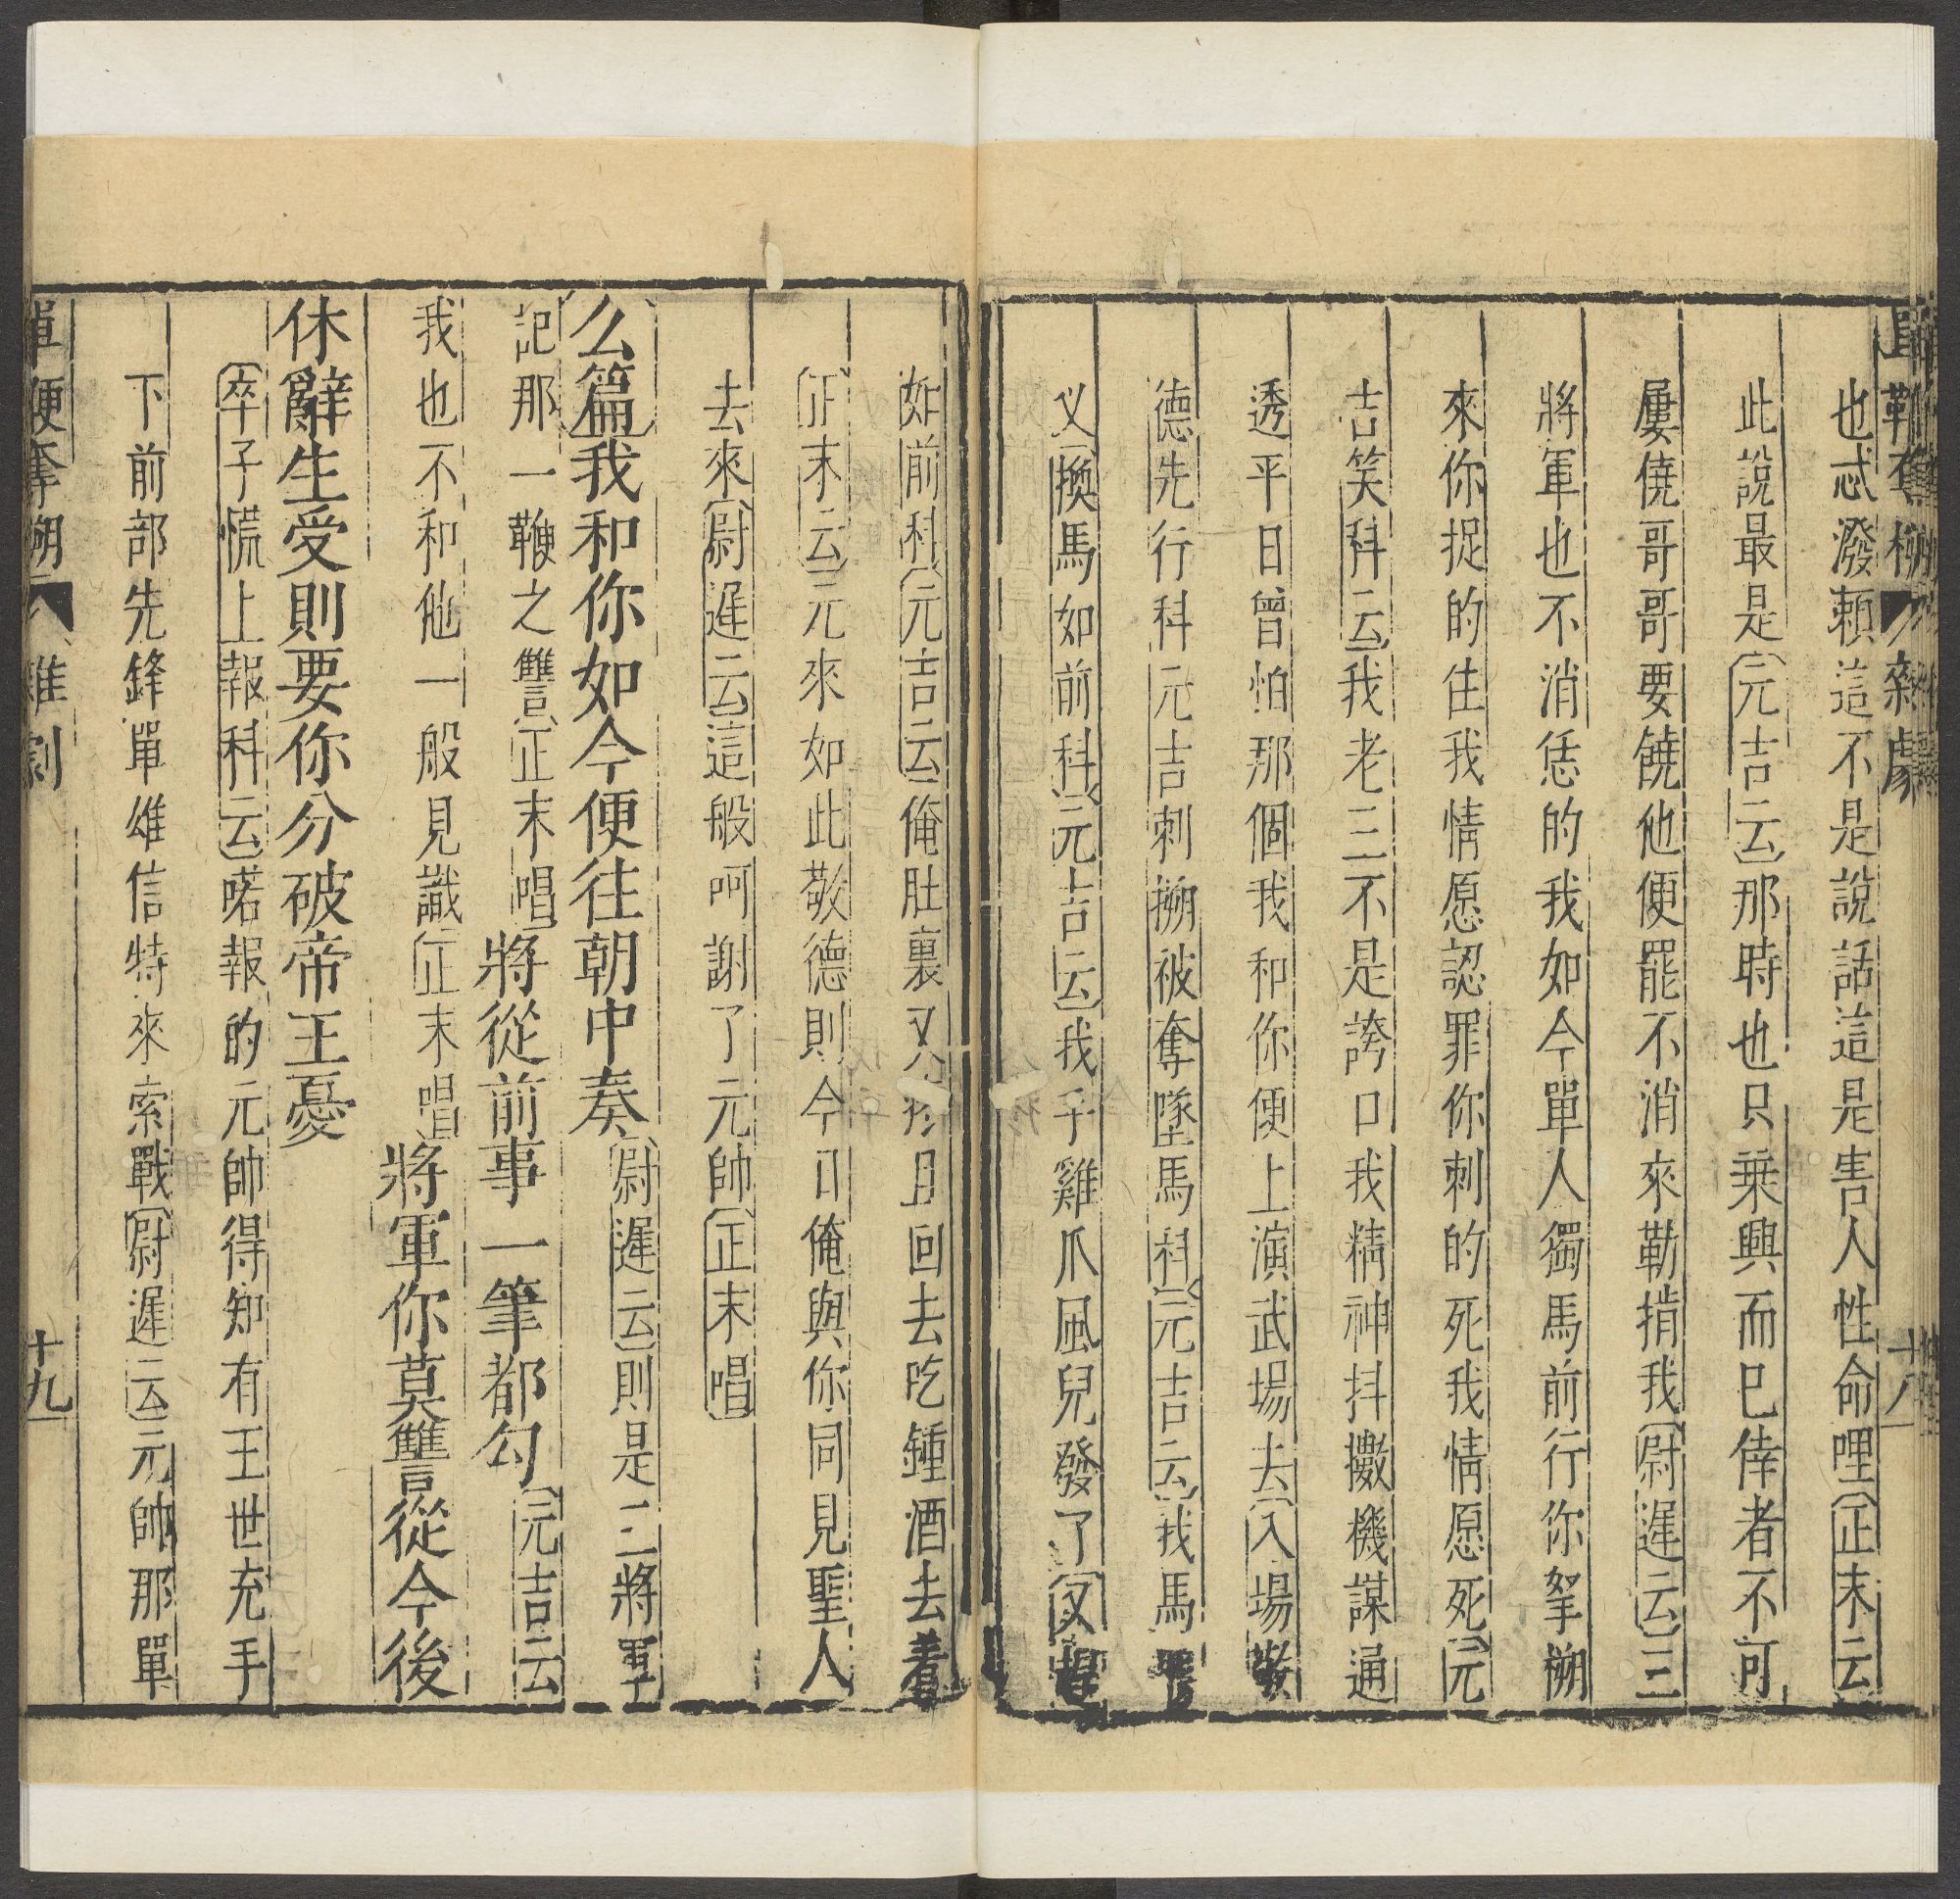 單鞭奪槊 雜劇 十八
也忒潑賴這不是說話這是害人性命哩〔正末云〕
此說最是〔元吉云〕那時也只乗興而已倖者不可
屢僥哥哥要饒他便罷不消來勒掯我〔尉遲云〕三
將軍也不消恁的我如今單人獨馬前行你拏槊
來你捉的住我情愿認罪你刺的死我情愿死〔元
吉笑科云〕我老三不是誇口我精神抖擻機謀通
透平日曾怕那個我和你便上演武場去〔入場敬
德先行科元吉刺槊被奪墜馬科〕〔元吉云〕我馬
乂〔換馬如前科〕〔元吉云〕我手雞爪風兒發了〔又
如前科〕〔元吉云〕俺肚裏又 且回去吃鍾酒去着
〔正末云〕元來如此敬德則今日俺與你同見聖人
去來〔尉遲云〕這般呵謝了元帥〔正末唱〕
〔么篇〕我和你如今便往朝中奏〔尉遲云〕則是二將軍
記那一鞭之讐〔正末唱〕將從前事一筆都勾〔元吉云
我也不和他一般見識〔正末唱〕將軍你莫讐從今後
休辭生受則要你分破帝王憂
〔卒子慌上報科云〕喏報的元帥得知有王世充手
下前部先鋒單雄信特來索戰〔尉遲云〕元帥那單
單鞭奪槊 雜劇 十九